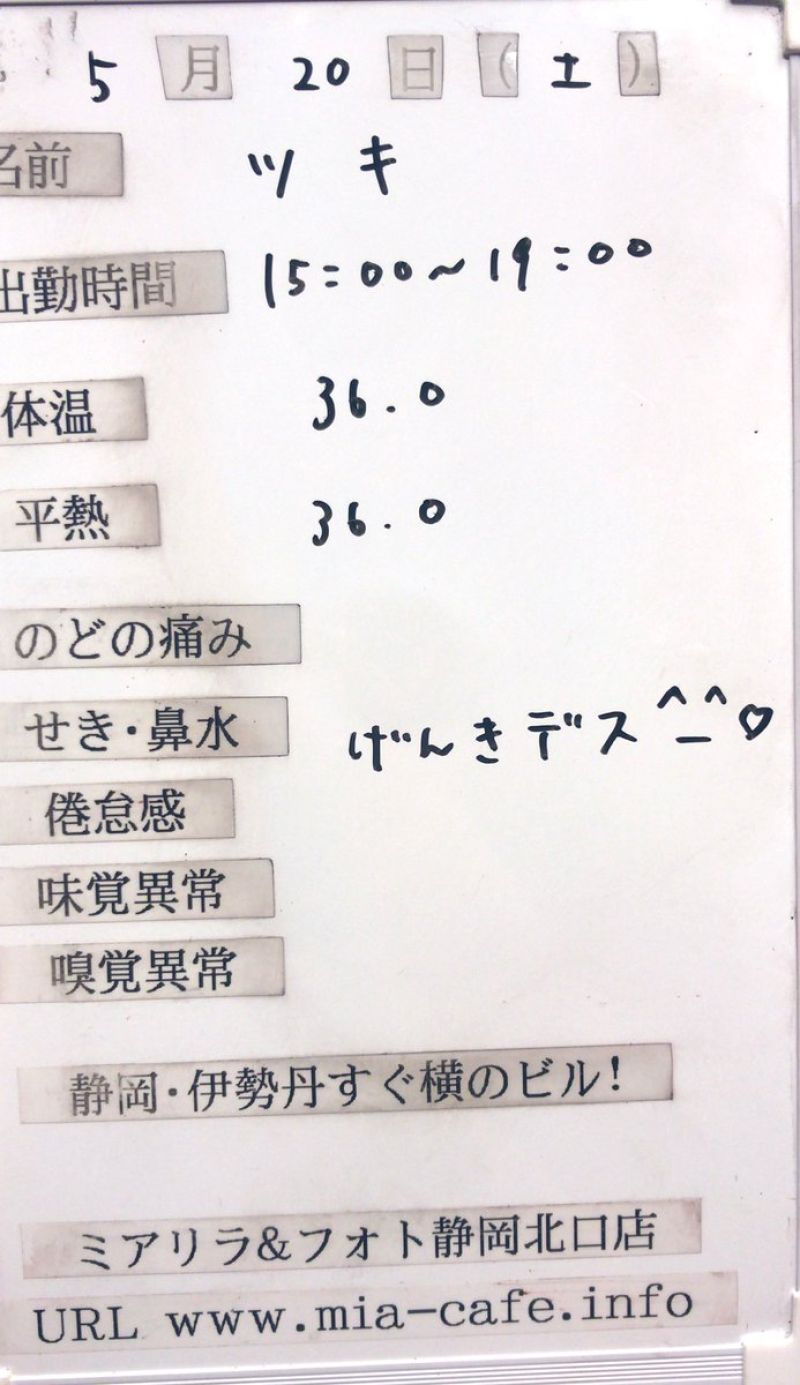 5月20日(土)
名前 ツキ
出勤時間 15:00~19:00
体温 36.0
平熱 36.0
のどの痛み
せき・鼻水 げんきデス^_^♡
倦怠感
味覚異常
嗅覚異常
静岡・伊勢丹すぐ横のビル!
ミアリラ&フォト静岡北口店
URL www.mia-cafe.info